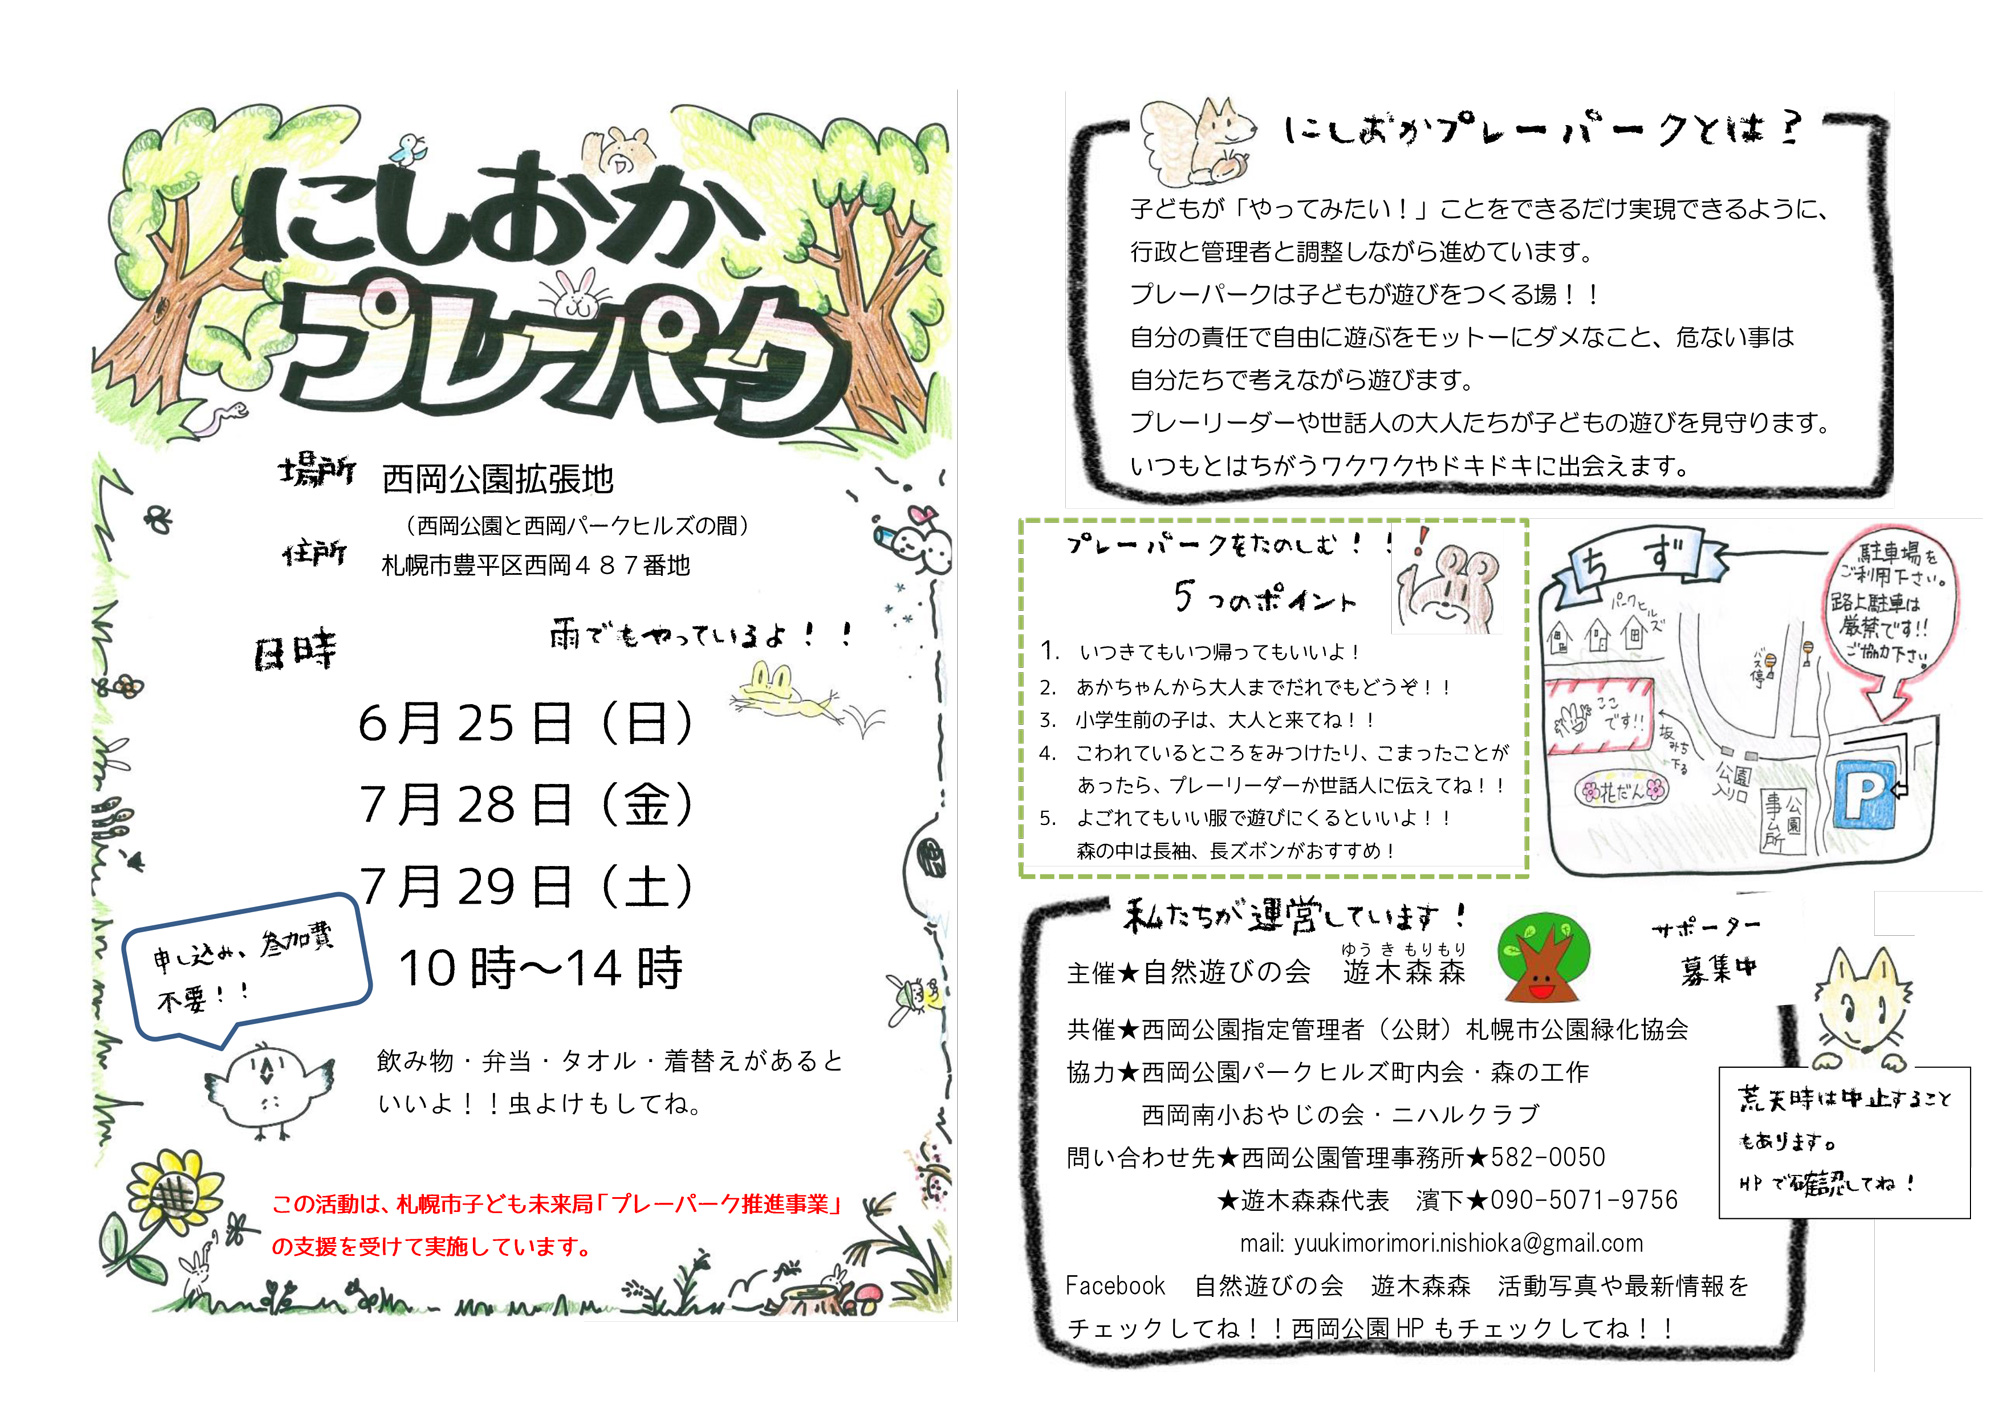 にしおか
プレーパーク
場所 西岡公園拡張地
（西岡公園と西岡パークヒルズの間）
住所 札幌市豊平区西岡４８７番地
日時 雨でもやっているよ！！
6月25日（日）
7月28日（金）
7月29日（土）
10時～14時
申し込み、参加費
不要！！
飲み物・弁当・タオル・着替えがあると
いいよ！！虫よけもしてね。
この活動は、札幌市子ども未来局「プレーパーク推進事業」
の支援を受けて実施しています。
にしおかプレーパークとは？
子どもが「やってみたい！」ことをできるだけ実現できるように、
行政と管理者と調整しながら進めています。
プレーパークは子どもが遊びをつくる場！！
自分の責任で自由に遊ぶをモットーにダメなこと、危ない事は
自分たちで考えながら遊びます。
プレーリーダーや世話人の大人たちが子どもの遊びを見守ります。
いつもとはちがうワクワクやドキドキに出会えます。
プレーパークをたのしむ！！
5つのポイント
1. いつきてもいつ帰ってもいいよ！
2. あかちゃんから大人までだれでもどうぞ！！
3. 小学生前の子は、大人と来てね！！
4. こわれているところをみつけたり、こまったことが
あったら、プレーリーダーか世話人に伝えてね！！
5. よごれてもいい服で遊びにくるといいよ！！
森の中は長袖、長ズボンがおすすめ！
ちず
駐車場を
ご利用下さい。
路上駐車は
厳禁です!!
ご協力下さい。
パークヒルズ
バス停
ここ
です!!
坂みち
下る
公園
入り口
花だん
公園
事ム所
P
私たちが運営しています！
ゆうきもりもり
主催★自然遊びの会　遊木森森
サポーター
募集中
共催★西岡公園指定管理者（公財）札幌市公園緑化協会
協力★西岡公園パークヒルズ町内会・森の工作
西岡南小おやじの会・ニハルクラブ
問い合わせ先★西岡公園管理事務所★582-0050
★遊木森森代表　濱下★090-5071-9756
mail: yuukimorimori.nishioka@gmail.com
Facebook　自然遊びの会　遊木森森　活動写真や最新情報を
チェックしてね！！西岡公園HPもチェックしてね！！
荒天時は中止すること
もあります。
HPで確認してね！